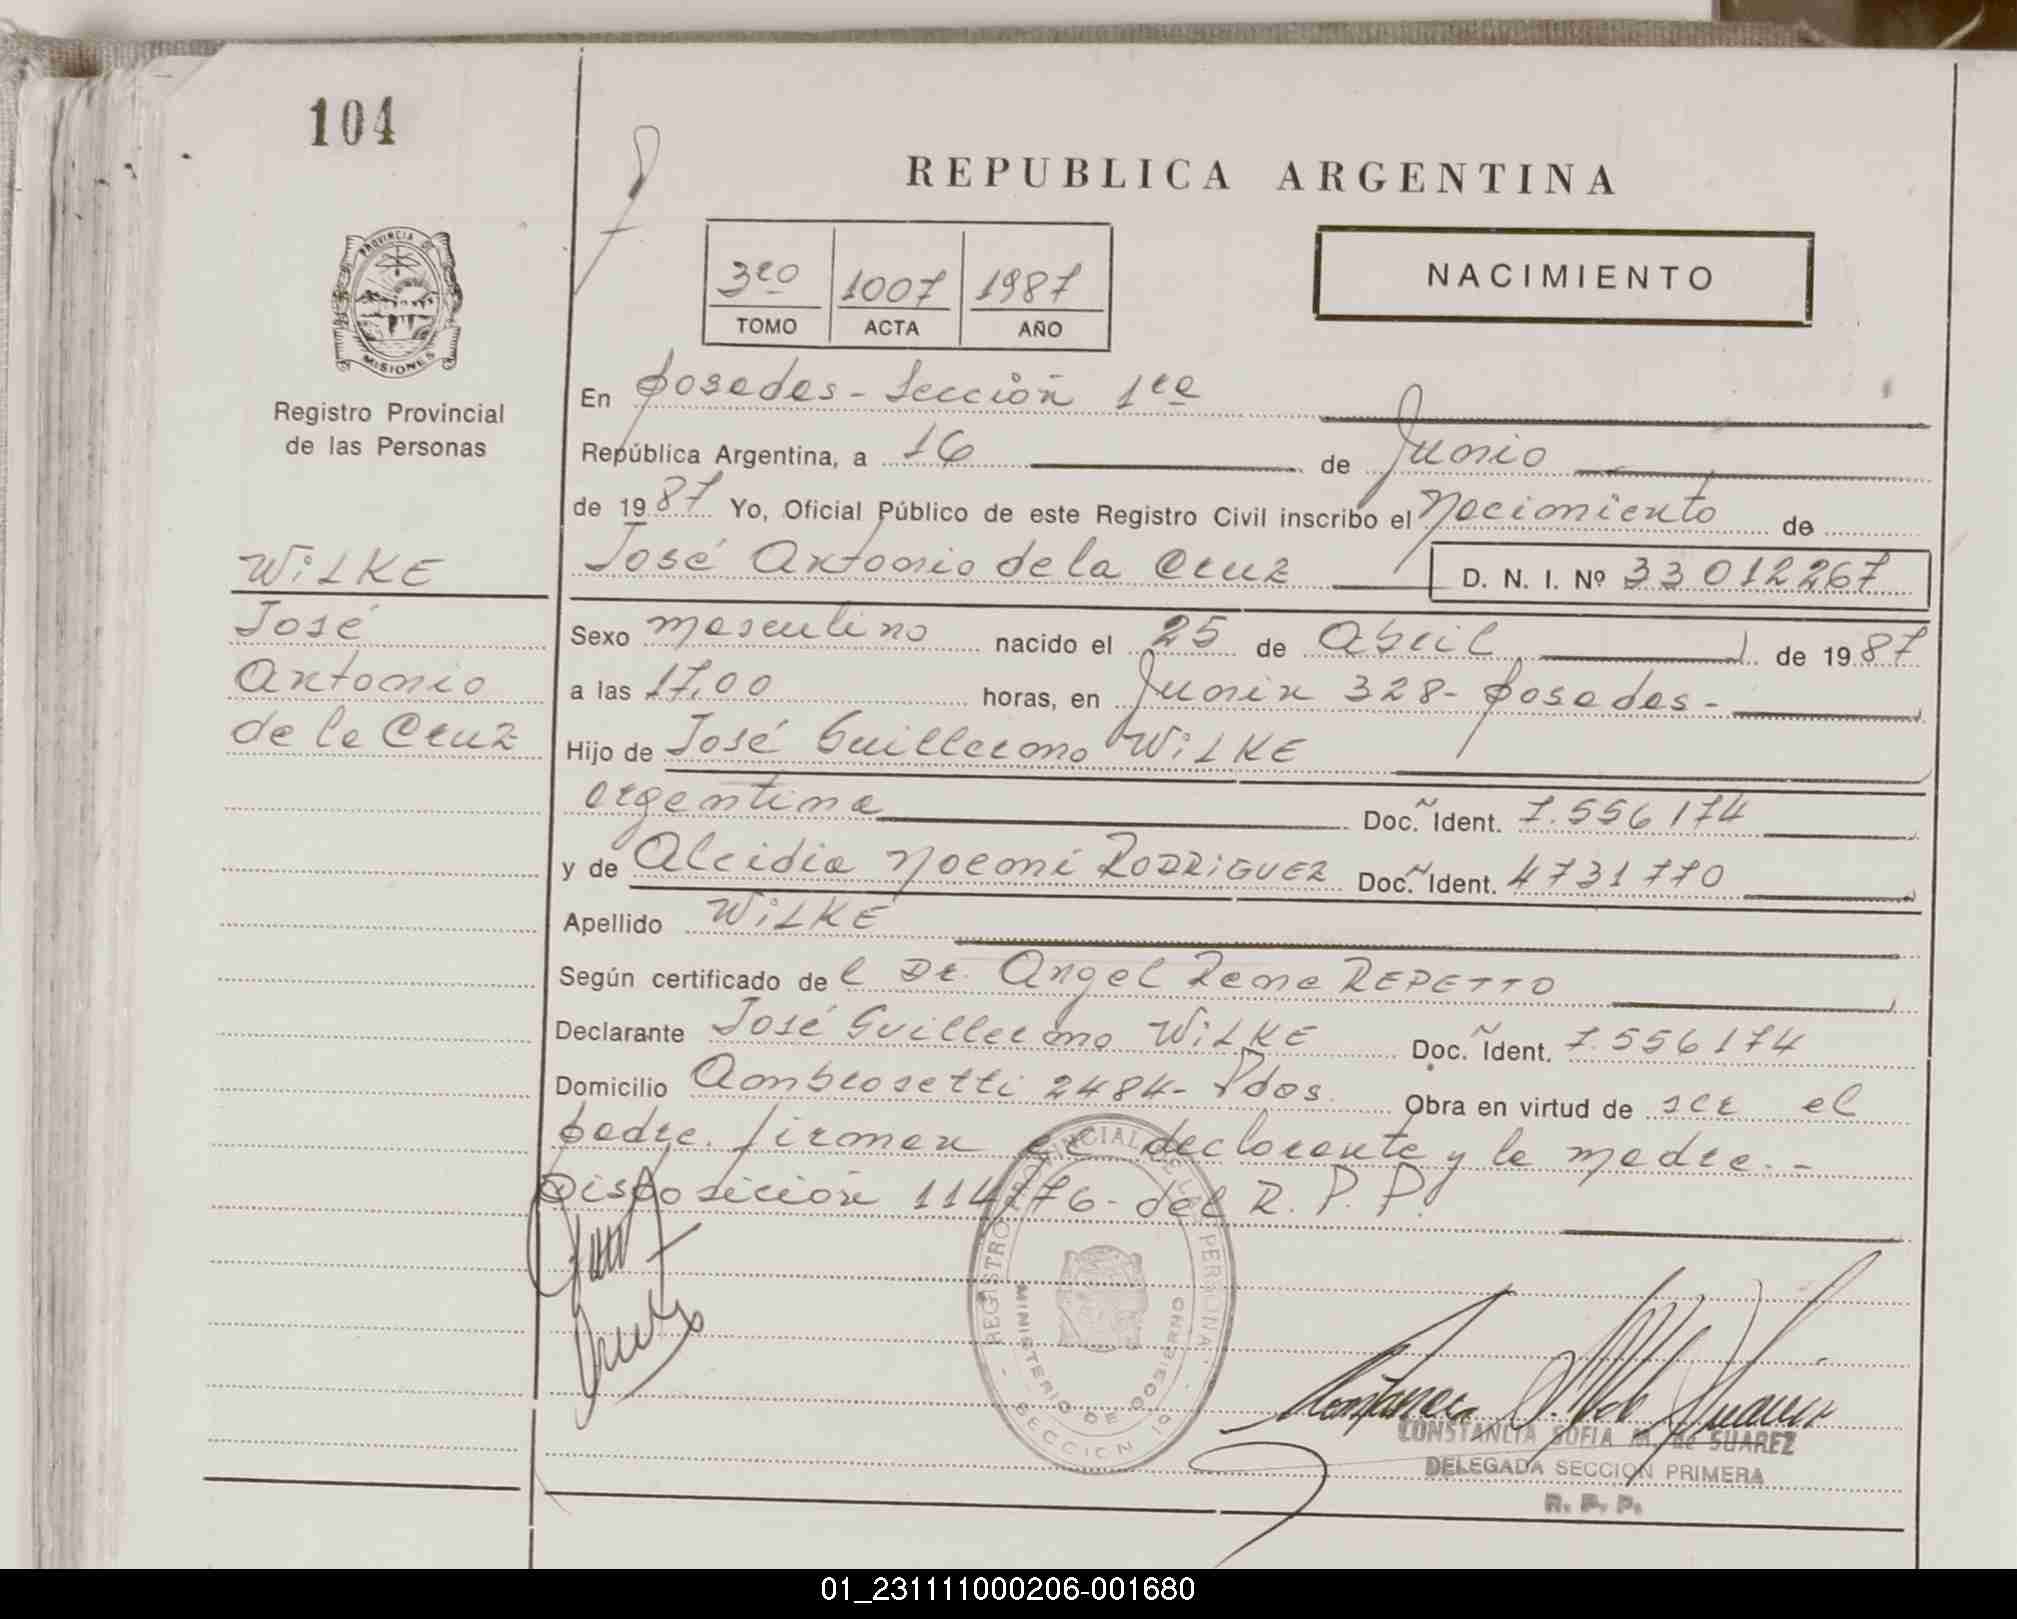 104
REPUBLICA ARGENTINA
PROVINCIA DE
MISIONES
Registro Provincial
de las Personas
3ro 1007 1987
TOMO ACTA AÑO
NACIMIENTO
En Posadas - Sección 1ra
República Argentina, a 16 de Junio
de 1987 Yo, Oficial Público de este Registro Civil inscribo el Nacimiento de
José Antonio de la Cruz D. N. I. Nº 33012267
WiLKE
José
Antonio
de la Cruz
Sexo masculino nacido el 25 de Abril de 1987
a las 17,00 horas, en Junin 328 - Posadas -
Hijo de José Guillermo WiLKE
argentina Doc. Ident. 7.556174
y de Alcidia Noemí RODRiGUEZ Doc. Ident. 4731770
Apellido WiLKE
Según certificado del Dr. Angel Rene REPETTO
Declarante José Guillermo WiLKE Doc. Ident. 7.556174
Domicilio Ambrosetti 2484 - Pdas. Obra en virtud de ser el
padre. firman el declarante y la madre. -
Disposición 114/76 - del R. P. P.
REGISTRO PROVINCIAL DE LAS PERSONAS
MINISTERIO DE GOBIERNO
SECCION 1a
CONSTANCIA SOFIA M. de SUAREZ
DELEGADA SECCION PRIMERA
R. P. P.
01_231111000206-001680